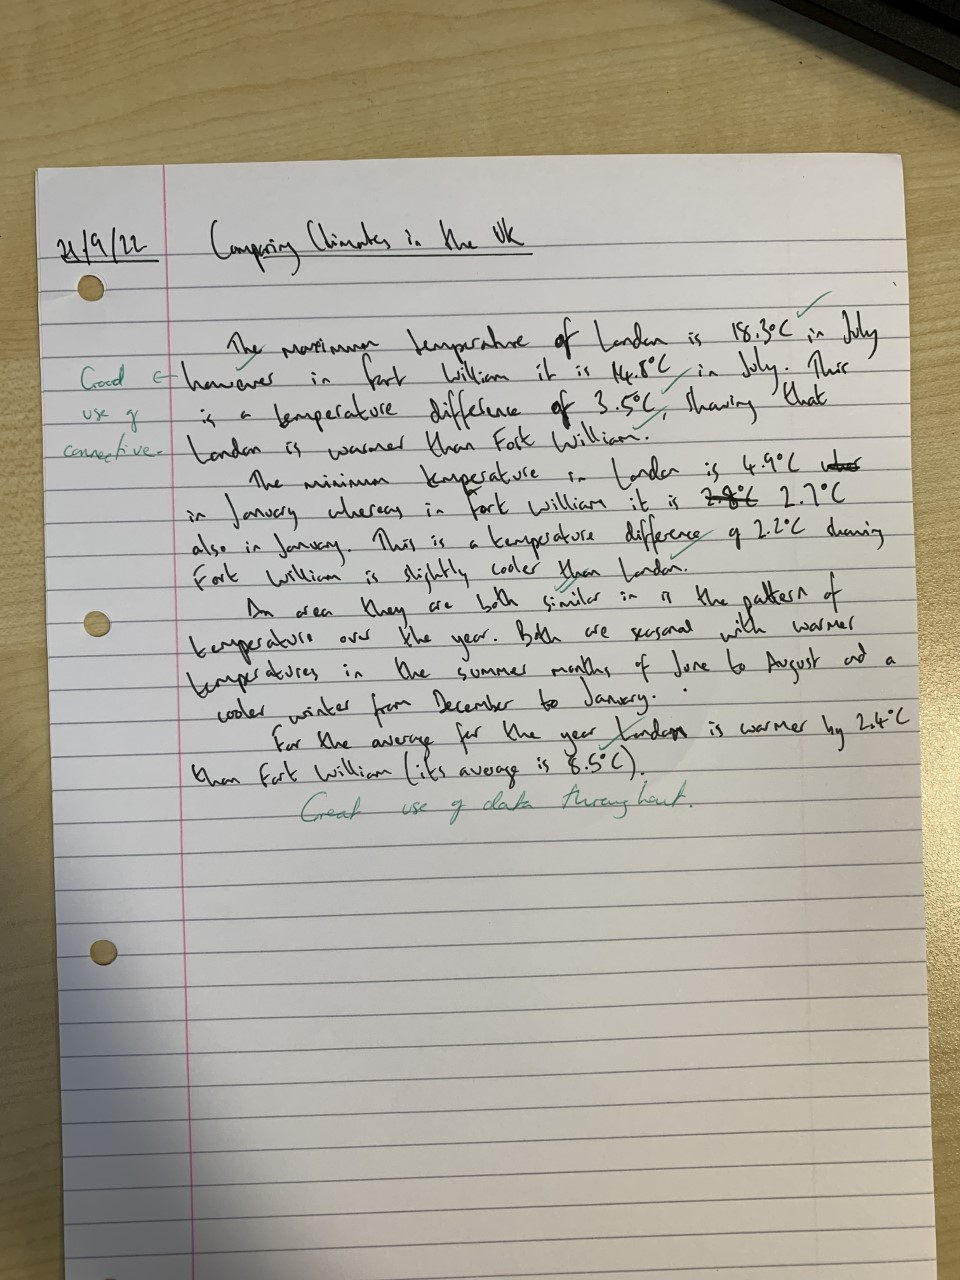 21/9/22 Comparing Climates in the UK
The maximum temperature of London is 18.3°C in July
Good ← however in fort William it is 14.8°C in July. This
use of is a temperature difference of 3.5°C, showing that
connective. London is warmer than Fort William.
The minimum temperature in London is 4.9°C
in January whereas in Fort William it is 2.8°C 2.7°C
also in January. This is a temperature difference of 2.2°C showing
Fort William is slightly cooler than London.
An area they are both similar in is the pattern of
temperature over the year. Both are seasonal with warmer
temperatures in the summer months of June to August and a
cooler winter from December to January.
For the average for the year London is warmer by 2.4°C
than Fort William (its average is 8.5°C).
Great use of data throughout.